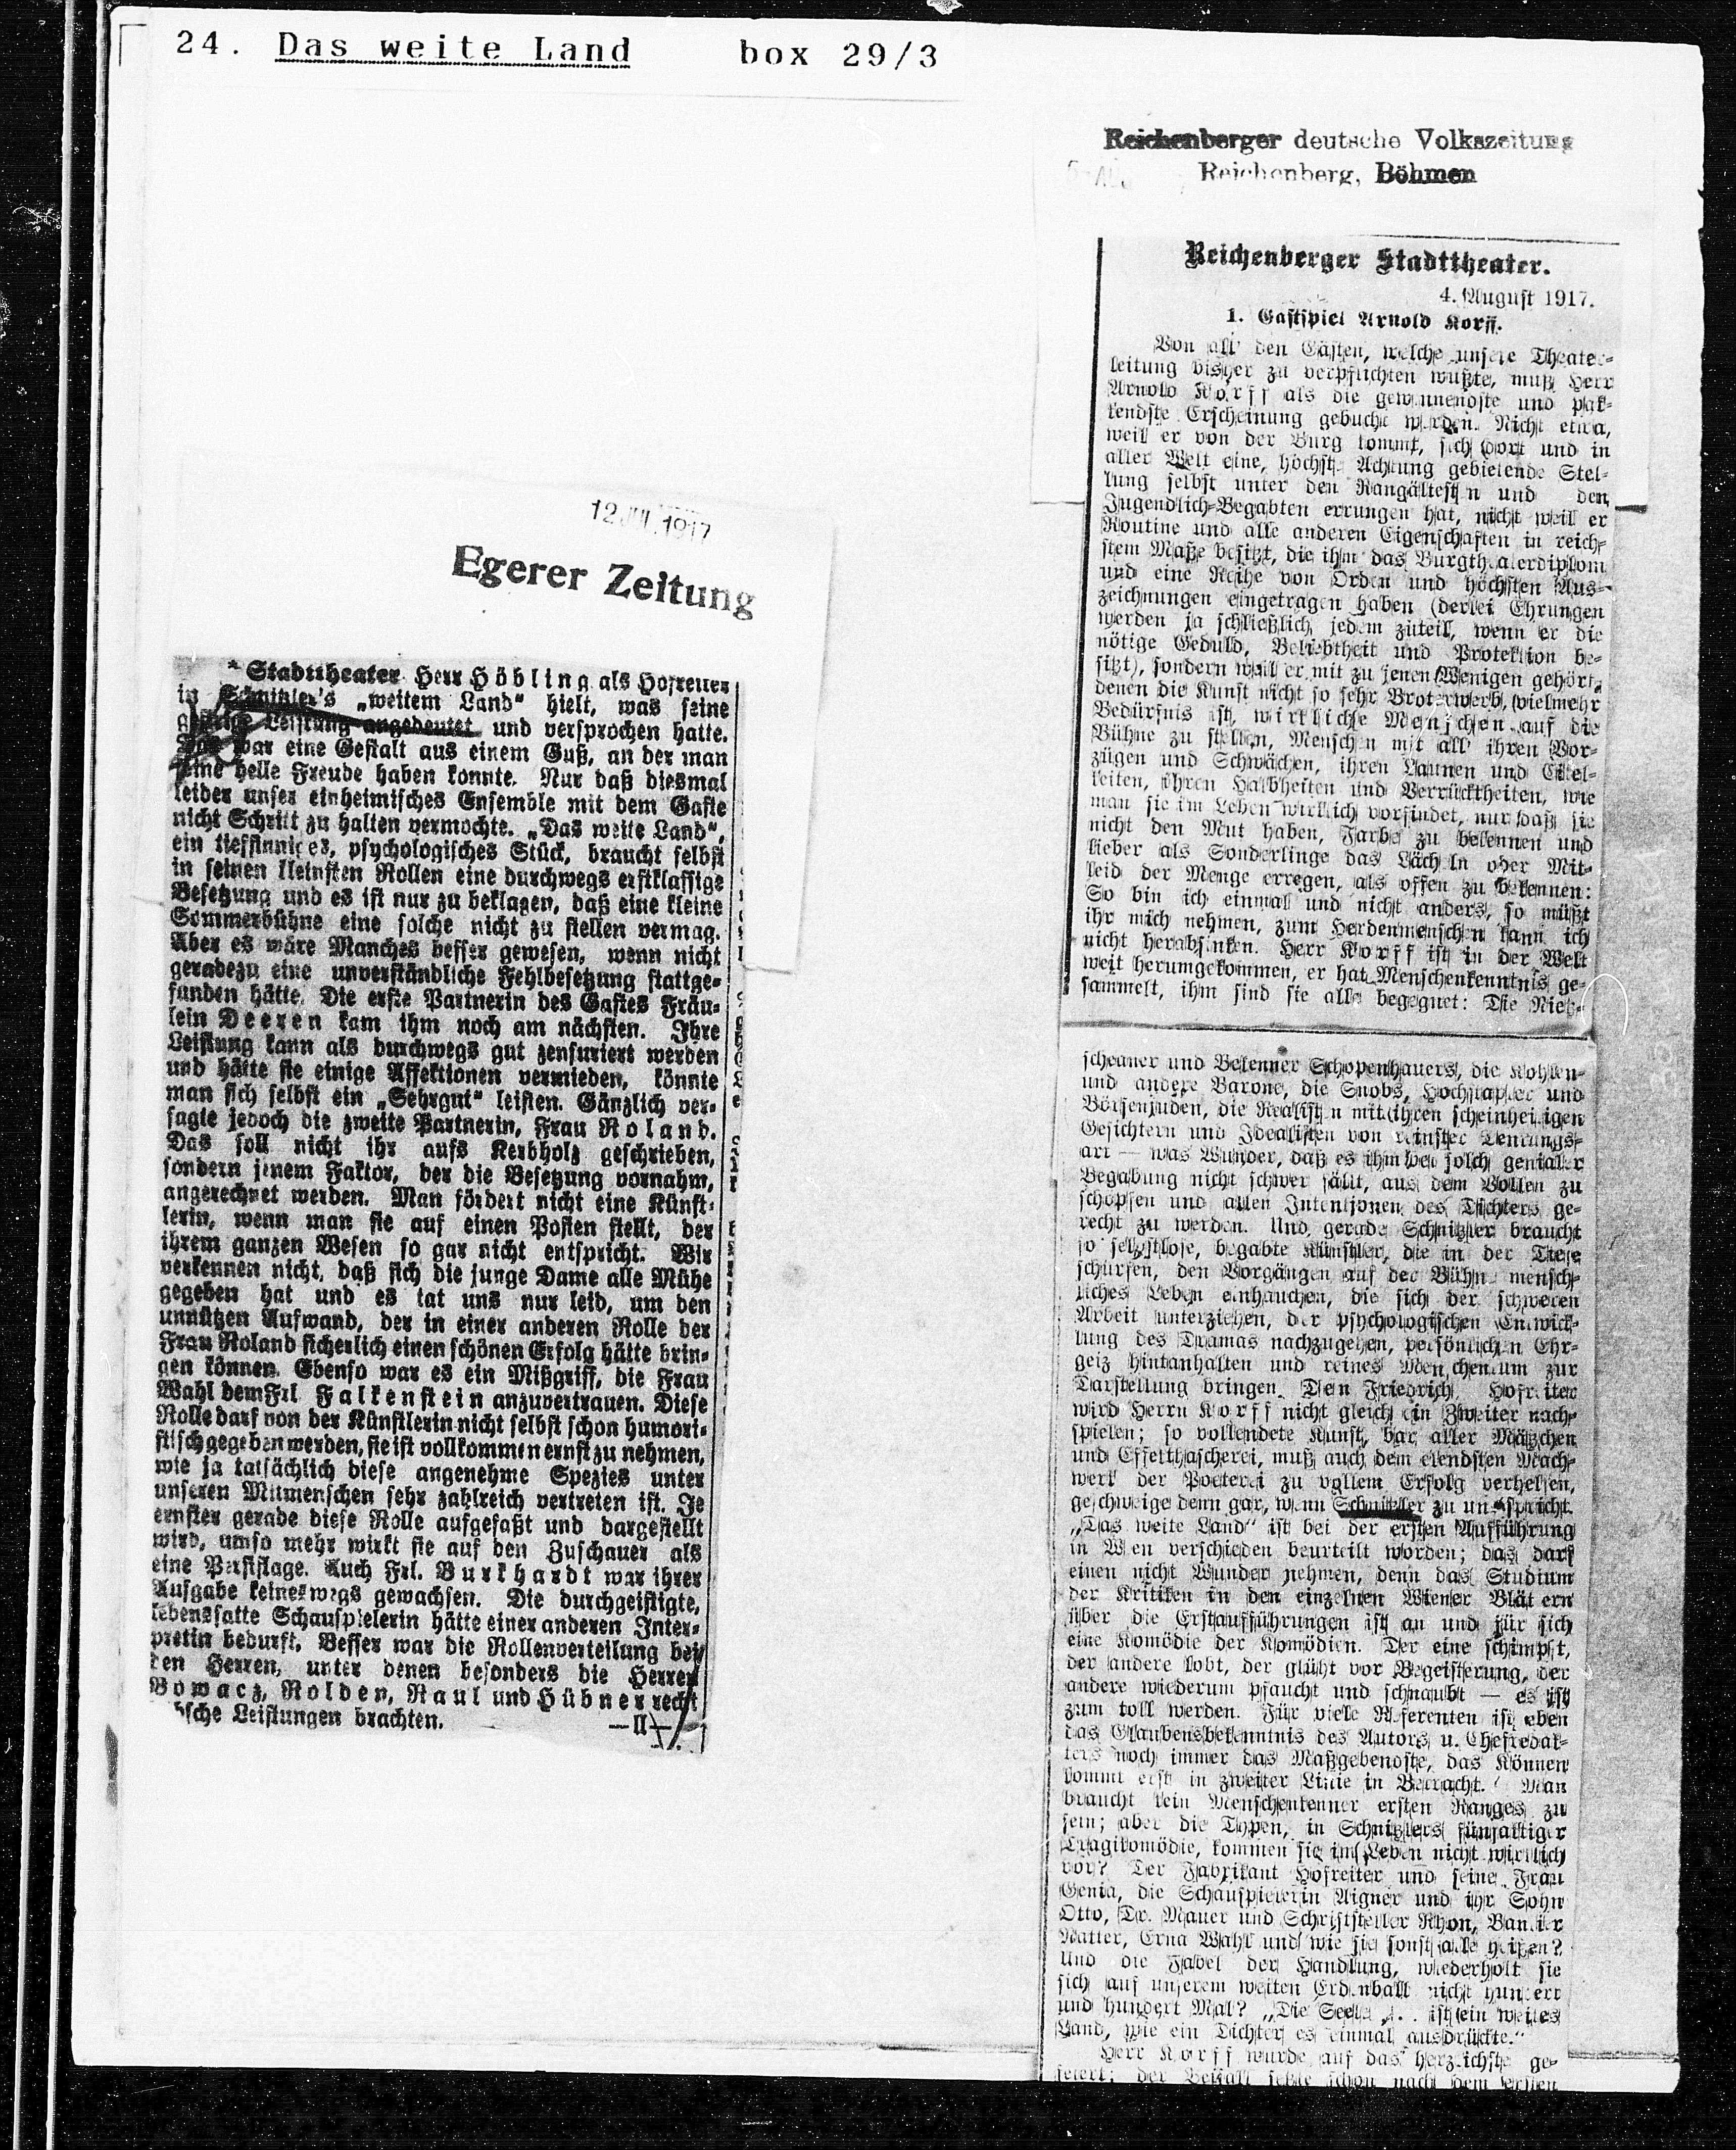 24. Das weite Land box 29/3
12 JUL. 1917
Egerer Zeitung
* Stadttheater. Herr Höbling als Hofreiter
in Schnitzler's „weitem Land“ hielt, was seine
Leistung angedeutet und versprochen hatte.
war eine Gestalt aus einem Guß, an der man
seine helle Freude haben konnte. Nur daß diesmal
leider unser einheimisches Ensemble mit dem Gaste
nicht Schritt zu halten vermochte. „Das weite Land“,
ein tiefsinniges, psychologisches Stück, braucht selbst
in seinen kleinsten Rollen eine durchwegs erstklassige
Besetzung und es ist nur zu beklagen, daß eine kleine
Sommerbühne eine solche nicht zu stellen vermag.
Aber es wäre Manches besser gewesen, wenn nicht
geradezu eine unverständliche Fehlbesetzung stattge-
funden hätte. Die erste Partnerin des Gastes Fräu-
lein Deeren kam ihm noch am nächsten. Ihre
Leistung kann als durchwegs gut zensuriert werden
und hätte sie einige Affektionen vermieden, könnte
man sich selbst ein „Sehrgut“ leisten. Gänzlich ver-
sagte jedoch die zweite Partnerin, Frau Roland.
Das soll nicht ihr aufs Kerbholz geschrieben,
sondern jenem Faktor, der die Besetzung vornahm,
angerechnet werden. Man fördert nicht eine Künst-
lerin, wenn man sie auf einen Posten stellt, der
ihrem ganzen Wesen so gar nicht entspricht. Wir
verkennen nicht, daß sich die junge Dame alle Mühe
gegeben hat und es tat uns nur leid, um den
unnützen Aufwand, der in einer anderen Rolle der
Frau Roland sicherlich einen schönen Erfolg hätte brin-
gen können. Ebenso war es ein Mißgriff, die Frau
Wahl dem Frl Falkenstein anzuvertrauen. Diese
Rolle darf von der Künstlerin nicht selbst schon humori-
stisch gegeben werden, sie ist vollkommen ernst zu nehmen,
wie ja tatsächlich diese angenehme Spezies unter
unseren Mitmenschen sehr zahlreich vertreten ist. Je
ernster gerade diese Rolle aufgefaßt und dargestellt
wird, umso mehr wirkt sie auf den Zuschauer als
eine Persiflage. Auch Frl. Burkhardt war ihrer
Aufgabe keineswegs gewachsen. Die durchgeistigte,
lebenssatte Schauspielerin hätte einer anderen Inter-
pretin bedurft. Besser war die Rollenverteilung bei
den Herren, unter denen besonders die Herren
Bowacz, Rolden, Raul und Hübner recht
bsche Leistungen brachten. —ll—
Reichenberger deutsche Volkszeitung
Reichenberg, Böhmen
Reichenberger Stadttheater.
4. August 1917.
1. Gastspiel Arnold Korff.
Von all' den Gästen, welche unsere Theater-
leitung bisher zu verpflichten wußte, muß Herr
Arnold Korff als die gewinnendste und pak-
kendste Erscheinung gebucht werden. Nicht etwa,
weil er von der Burg kommt, sich dort und in
aller Welt eine, höchste Achtung gebietende Stel-
lung selbst unter den Rangältesten und den
Jugendlich-Begabten errungen hat, nicht weil er
Routine und alle anderen Eigenschaften in reich-
stem Maße besitzt, die ihm das Burgtheaterdiplom
und eine Reihe von Orden und höchsten Aus-
zeichnungen eingetragen haben (derlei Ehrungen
werden ja schließlich jedem zuteil, wenn er die
nötige Geduld, Beliebtheit und Protektion be-
sitzt), sondern weil er mit zu jenen Wenigen gehört,
denen die Kunst nicht so sehr Broterwerb, vielmehr
Bedürfnis ist, wirkliche Menschen auf die
Bühne zu stellen, Menschen mit all' ihren Vor-
zügen und Schwächen, ihren Launen und Eitel-
keiten, ihren Halbheiten und Verrücktheiten, wie
man sie im Leben wirklich vorfindet, nur daß sie
nicht den Mut haben, Farbe zu bekennen und
lieber als Sonderlinge das Lächeln oder Mit-
leid der Menge erregen, als offen zu bekennen:
So bin ich einmal und nicht anders, so müßt
ihr mich nehmen, zum Herdenmenschen kann ich
nicht herabsinken. Herr Korff ist in der Welt
weit herumgekommen, er hat Menschenkenntnis ge-
sammelt, ihm sind sie alle begegnet: Die Nietz-
scheaner und Bekenner Schopenhauers, die Kohlen-
und andere Barone, die Snobs, Hochstapler und
Börsenjuden, die Realisten mit ihren scheinheiligen
Gesichtern und Idealisten von reinster Denkungs-
art — was Wunder, daß es ihm bei solch genialer
Begabung nicht schwer fällt, aus dem Vollen zu
schöpfen und allen Intentionen des Dichters ge-
recht zu werden. Und gerade Schnitzler braucht
so selbstlose, begabte Künstler, die in der Tiefe
schürfen, den Vorgängen auf der Bühne mensch-
liches Leben einhauchen, die sich der schweren
Arbeit unterziehen, der psychologischen Entwick-
lung des Dramas nachzugehen, persönlichen Ehr-
geiz hintanhalten und reines Menschentum zur
Darstellung bringen. Den Friedrich Hofreiter
wird Herrn Korff nicht gleich ein Zweiter nach-
spielen; so vollendete Kunst, bar aller Mätzchen
und Effekthascherei, muß auch dem elendsten Mach-
werk der Poeterei zu vollem Erfolg verhelfen,
geschweige denn gar, wenn Schnitzler zu uns spricht.
„Das weite Land“ ist bei der ersten Aufführung
in Wien verschieden beurteilt worden; das darf
einen nicht Wunder nehmen, denn das Studium
der Kritiken in den einzelnen Wiener Blättern
über die Erstaufführungen ist an und für sich
eine Komödie der Komödien. Der eine schimpft,
der andere lobt, der glüht vor Begeisterung, der
andere wiederum pfaucht und schnaubt — es ist
zum toll werden. Für viele Referenten ist eben
das Glaubensbekenntnis des Autors u. Chefredak-
ters noch immer das Maßgebendste, das Können
kommt erst in zweiter Linie in Betracht. Man
braucht kein Menschenkenner ersten Ranges zu
sein; aber die Typen, in Schnitzlers fünfaktiger
Tragikomödie, kommen sie im Leben nicht wirklich
vor? Der Fabrikant Hofreiter und seine Frau
Genia, die Schauspielerin Aigner und ihr Sohn
Otto, Dr. Mauer und Schriftsteller Rhon, Bankier
Natter, Erna Wahl und wie sie sonst alle heißen?
Und die Fabel der Handlung, wiederholt sie
sich auf unserem weiten Erdenball nicht hundert
und hundert Mal? „Die Seele . . . ist ein weites
Land, wie ein Dichter es einmal ausdrückte.“
Herr Korff wurde auf das herzlichste ge-
feiert; der Beifall setzte schon nach dem ersten